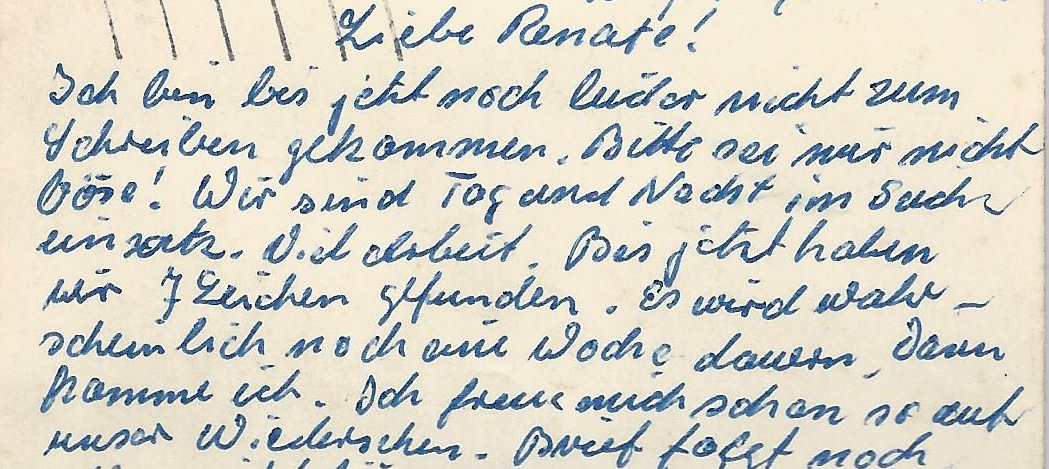 Liebe Renate!
Ich bin bis jetzt noch leider nicht zum
Schreiben gekommen. Bitte sei mir nicht
böse! Wir sind Tag und Nacht im Such
einsatz. Viel Arbeit. Bis jetzt haben
wir 7 Leichen gefunden. Es wird wahr-
scheinlich noch eine Woche dauern, Dann
komme ich. Ich freue mich schon so auf
unser Wiedersehen. Brief folgt noch